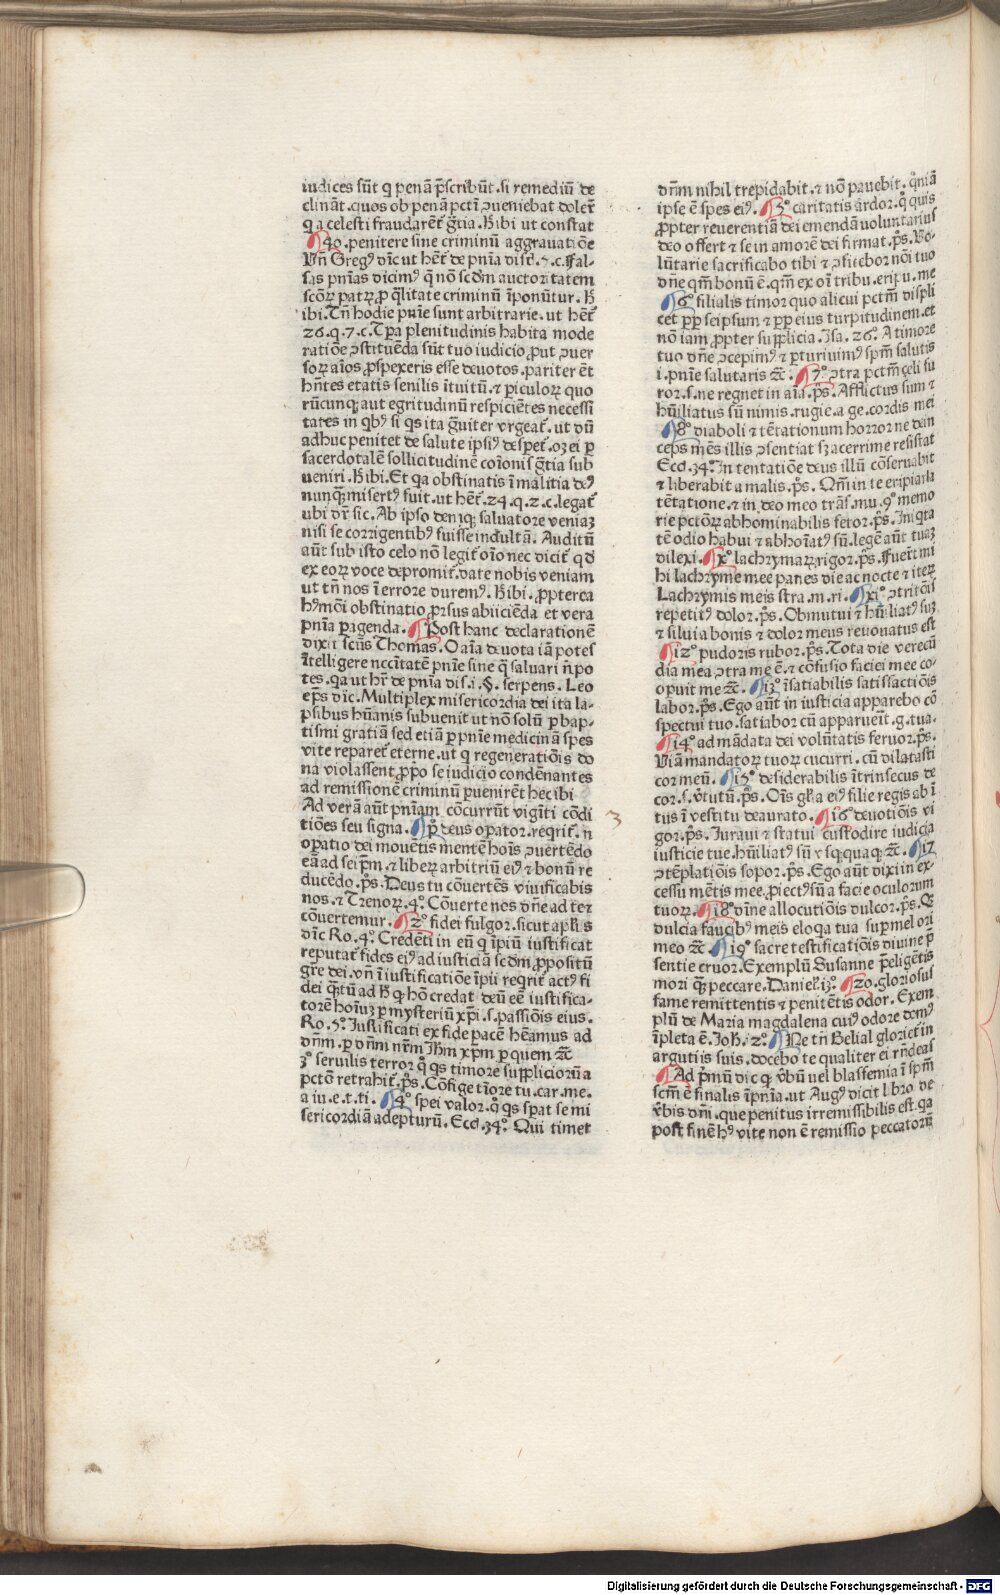 iudices sūt q penā p̄scribūt. si remediū de
clināt. quos ob penā pctī ꝓueniebat dolet̄
q a celesti fraudaret̄ gr̄tia. H ibi ut constat
¶ 4o. penitere sine criminū aggrauatiōe
Vn̄ Greg⁹ dīc ut het̄ de pnīa dist̄. 5. c. Fal-
sas pnīas dicim⁹ q nō scđm auctoritatem
scōꝝ patꝝ. ꝓ q̄litate criminū īponūtur. H
ibi. Tn̄ hodie pnīe sunt arbitrarie. ut het̄
26. q. 7. c. Tpa plenitudinis habita mode
ratiōe ꝯstituēda sūt tuo iudicio, ꝓut ꝯuer
soꝝ aīos ꝓspexeris esse deuotos. pariter et̄
hn̄tes etatis senilis ītuitū. ⁊ piculoꝝ quo
rūcunq; aut egritudinū respiciētes necessi
tates in qb⁹ si qs ita ḡuiter vrgeat̄. ut dū
adhuc penitet de salute ipsi⁹ despet̄. oꝫ ei p
sacerdotalē sollicitudinē coīonis gr̄tia sub
ueniri. H ibi. Et qa obstinatis ī malitia de⁹
nunq̄ꝫ misert⁹ fuit. ut het̄. 24. q. 2. c. legat̄
ubi dr̄ sic. Ab ipso deniqꝫ saluatore veniaꝫ
nisi se corrigentib⁹ fuisse indultā. Auditū
aūt sub isto celo nō legit̄ oīo nec dicit̄ q d
ex eoꝝ voce depromit̄. date nobis veniam
ut tn̄ nos ī errore durem⁹. H ibi. propterea
h⁹mōi obstinatio ꝓrsus abiiciēda et vera
pnīa pagenda. ¶ Post hanc declarationē
dixit scn̄s Thomas. O aīa deuota iā potes
ītelligere nccītatē pnīe sine q̄ saluari n̄ po
tes. qa ut hr̄ de pnīa dis. i. §. serpens. Leo
ep̄s dīc. Multiplex misericordia dei ita la-
psibus hūanis subuenit ut nō solū p bap-
tismi gratiā sed etiā p pnīe medicinā spes
vite reparet̄ eterne. ut q regeneratiōis do
na violassent ꝓpo se iudicio condēnantes
ad remissionē criminū puenirēt hec ibi
Ad verā aūt pnīam cōcurrūt vigīti cōdi
tiōes seu signa. ¶ P̄ deus opator. reqrit̄. n
opatio dei mouētis mentē hoīs ꝯuertēdo
eā ad seipm̄. ⁊ liberꝝ arbitriū ei⁹ ⁊ bonū re
ducēdo. p̄s. Deus tu cōuertēs viuificabis
nos. ⁊ Trenoꝝ. 4°. Cōuerte nos dn̄e ad te ⁊
cōuertemur. ¶ 2° fidei fulgor. sicut apl̄us
dīc Ro. 4°. Credēti in eū q īpiū iustificat
reputat̄ fides ei⁹ ad iusticiā scđm ꝓpositū
gr̄e dei. vn̄ ī iustificatiōe īpii reqrit̄ act⁹ fi
dei q̄ꝫtū ad H q̄ hō credat deū eē iustifica-
torē hoīuꝫ p mysteriū xp̄i. s. passiōis eius.
Ro. 5°. Iustificati ex fide pacē hēamus ad
dn̄m. p dn̄m nr̄m Ihm̄ xp̄m p quem ⁊c̄
3° seruilis terror q̄ qs timore suppliciorū a
pctō retrahit̄. p̄s. Cōfige tīore tu. car. me.
a iu. e. t. ti. ¶ 4° spei valor. q̄ qs spat se mi
sericordiā adepturū. Eccl. 34°. Qui timet
3
dn̄m nihil trepidabit. ⁊ nō pauebit. qn̄iā
ipse ē spes ei⁹. ¶ 5° caritatis ārdor. q̄ quis
ꝓpter reuerentiā dei emendā voluntarius
deo offert ⁊ se in amorē dei firmat. p̄s. Vo-
lūtarie sacrificabo tibi ⁊ ꝯfitebor nōi tuo
dn̄e qm̄ bonū ē. qm̄ ex oī tribu. eripu. me
¶ 6° filialis timor quo alicui pctm̄ displi
cet pp seipsum ⁊ pp eius turpitudinem. et
nō iam ꝓpter supplicia. Isa. 26°. A timore
tuo dn̄e ꝯcepim⁹ ⁊ pturiuim⁹ spm̄ salutis
i. pnīe salutaris ⁊c̄. ¶ 7° ꝯtra pctm̄ çeli fu
ror. s. ne regnet in aīa. p̄s. Afflictus sum ⁊
hūiliatus sū nimis. rugie. a ge. cordis mei
¶ 8° diaboli ⁊ tētationum horror ne dein
ceps mēs illis ꝯsentiat sꝫ acerrime resistat
Eccl. 34°. In tentatiōe deus illū cōseruabit
⁊ liberabit a malis. p̄s. Qm̄ in te eripiar a
tētatione. ⁊ in deo meo trās. mu. 9° memo
rie pctōꝝ abhominabilis fetor. p̄s. Iniqta
tē odio habui ⁊ abhoīat⁹ sū. legē aūt tuaꝫ
dilexi. ¶ x° lachrymaꝝ rigor. p̄s. Fuerūt mi
hi lachryme mee panes die ac nocte ⁊ iteꝝ
Lachrymis meis stra. m. ri. ¶ xi° ꝯtritōis
repetit⁹ dolor. p̄s. Obmutui ⁊ hūiliat⁹ suꝫ
⁊ silui a bonis ⁊ dolor meus reuouatus est
¶ 12° pudoris rubor. p̄s. Tota die verecū
dia mea ꝯtra me ē. ⁊ cōfusio faciei mee co-
opuit me ⁊c̄. ¶ 13° īsatiabilis satisfactiōis
labor. p̄s. Ego aūt in iusticia apparebo cō
spectui tuo. satiabor cū apparuerit. g. tua.
¶ 14° ad mādata dei volūtatis feruor. p̄s.
Viā mandatoꝝ tuoꝝ cucurri. cū dilatasti
cor meū. ¶ 15° desiderabilis ītrinsecus de
cor. s. v̄tutū. p̄s. Oīs gl̄ia ei⁹ filie regis ab ī
tus ī vestitu deaurato. ¶ 16° deuotiōis vi
gor. p̄s. Iuraui ⁊ statui custodire iudicia
iusticie tue. hūiliat⁹ sū vsqꝫquaqꝫ ⁊c̄. ¶ 17
ꝯtēplatiōis sopor. p̄s. Ego aūt dixi in ex-
cessu mētis mee, ꝓiect⁹ sū a facie oculorum
tuoꝝ. ¶ 18° dīne allocutiōis dulcor. p̄s. Q̄
dulcia faucib⁹ meis eloqa tua sup mel ori
meo ⁊c̄. ¶ 19° sacre testificatiōis diuine p̄
sentie cruor. Exemplū Susanne p̄eligētis
mori q̄ꝫ peccare. Daniel. 13°. ¶ 20. gloriosus
fame remittentis ⁊ penitētis odor. Exem
plū de Maria magdalena cui⁹ odore dom⁹
īpleta ē. Joh. 12°. ¶ Ne tn̄ Belial gloriet̄ in
argutiis suis. docebo te qualiter ei rn̄deas
¶ Ad p̄mū dīc q v̄bū uel blasfemia ī spm̄
scm̄ ē finalis īpnīa. ut Aug⁹ dicit libro de
v̄bis dn̄i. que penitus irremissibilis est. qa
post finē h⁹ vite non ē remissio peccatorū
Digitalisierung gefördert durch die Deutsche Forschungsgemeinschaft - DFG